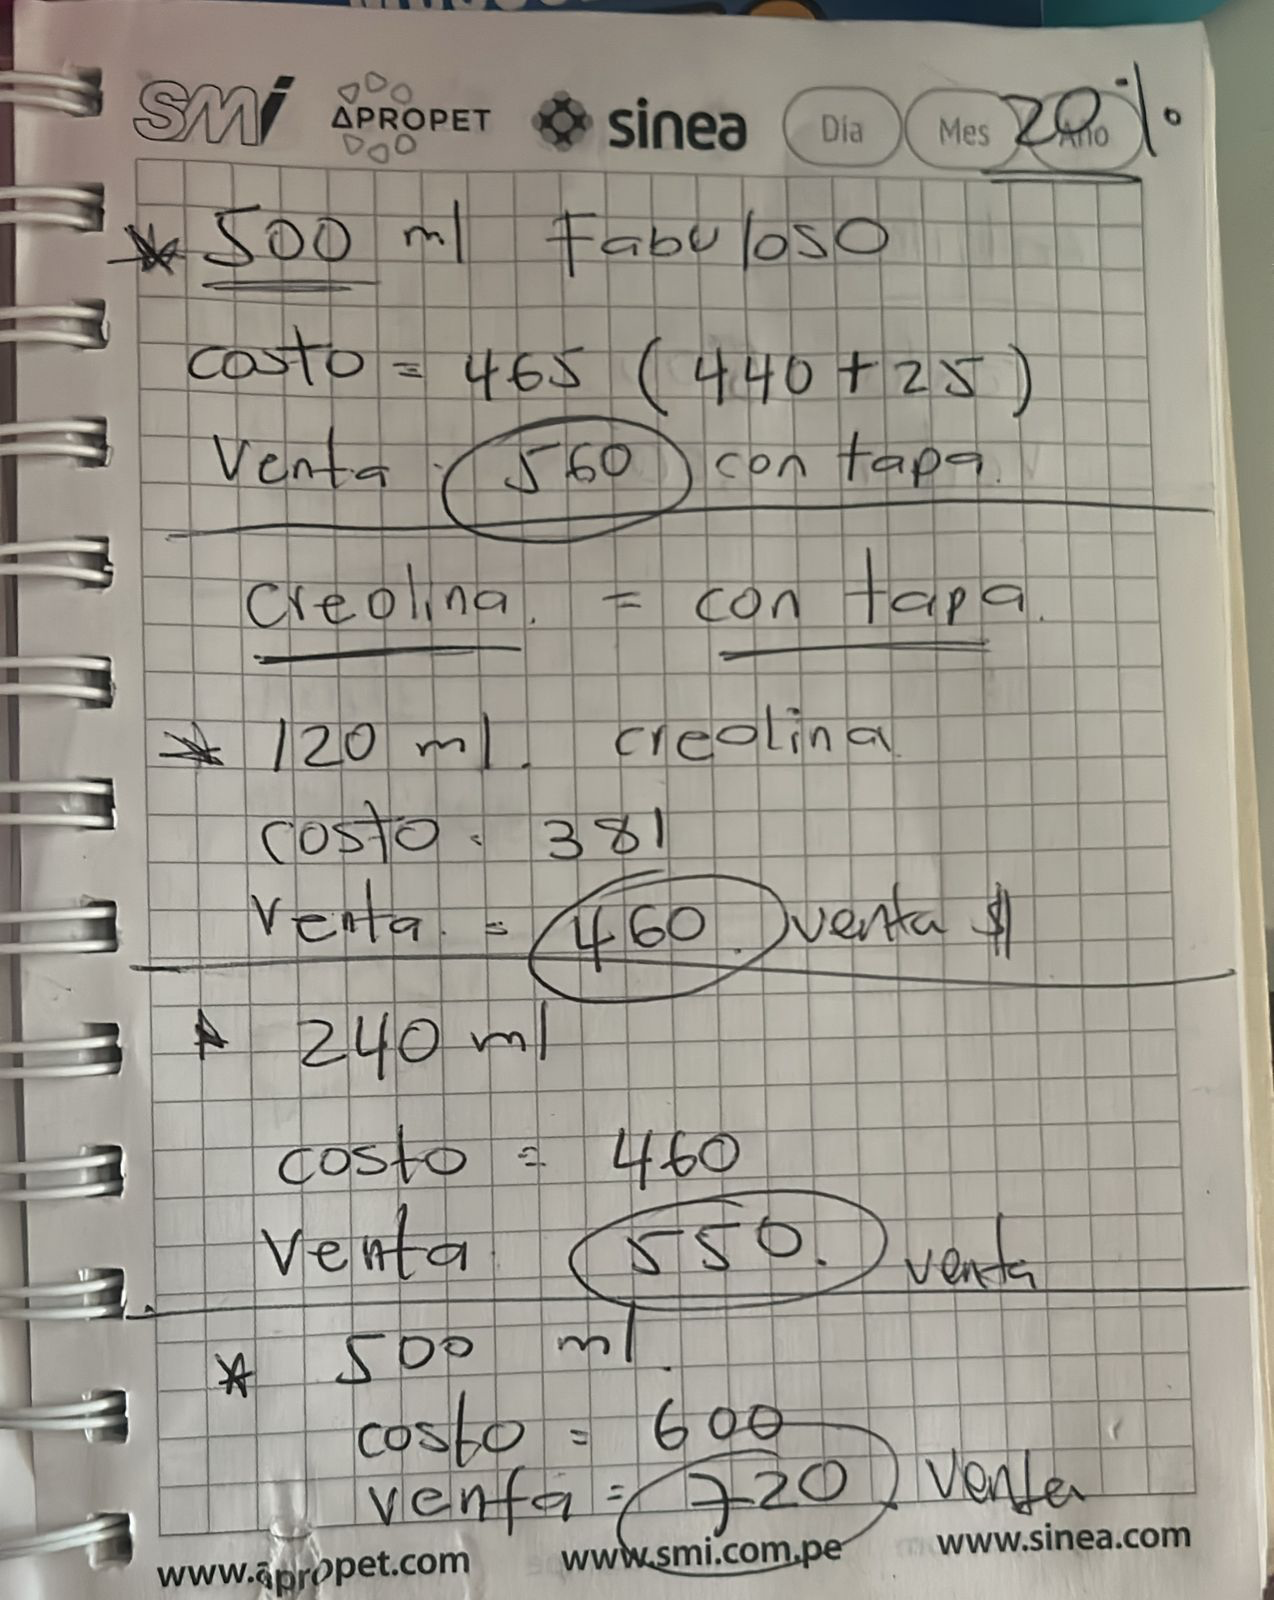 SMi APROPET sinea Dia Mes Año 20%
* 500 ml Fabuloso
costo = 465 (440 + 25)
Venta . 560 con tapa.
creolina. = con tapa.
* 120 ml. creolina
costo . 381
Venta. = 460. venta $
* 240 ml
costo = 460
Venta 550. venta
* 500 ml.
costo = 600
venta = 720 venta
www.apropet.com www.smi.com.pe www.sinea.com